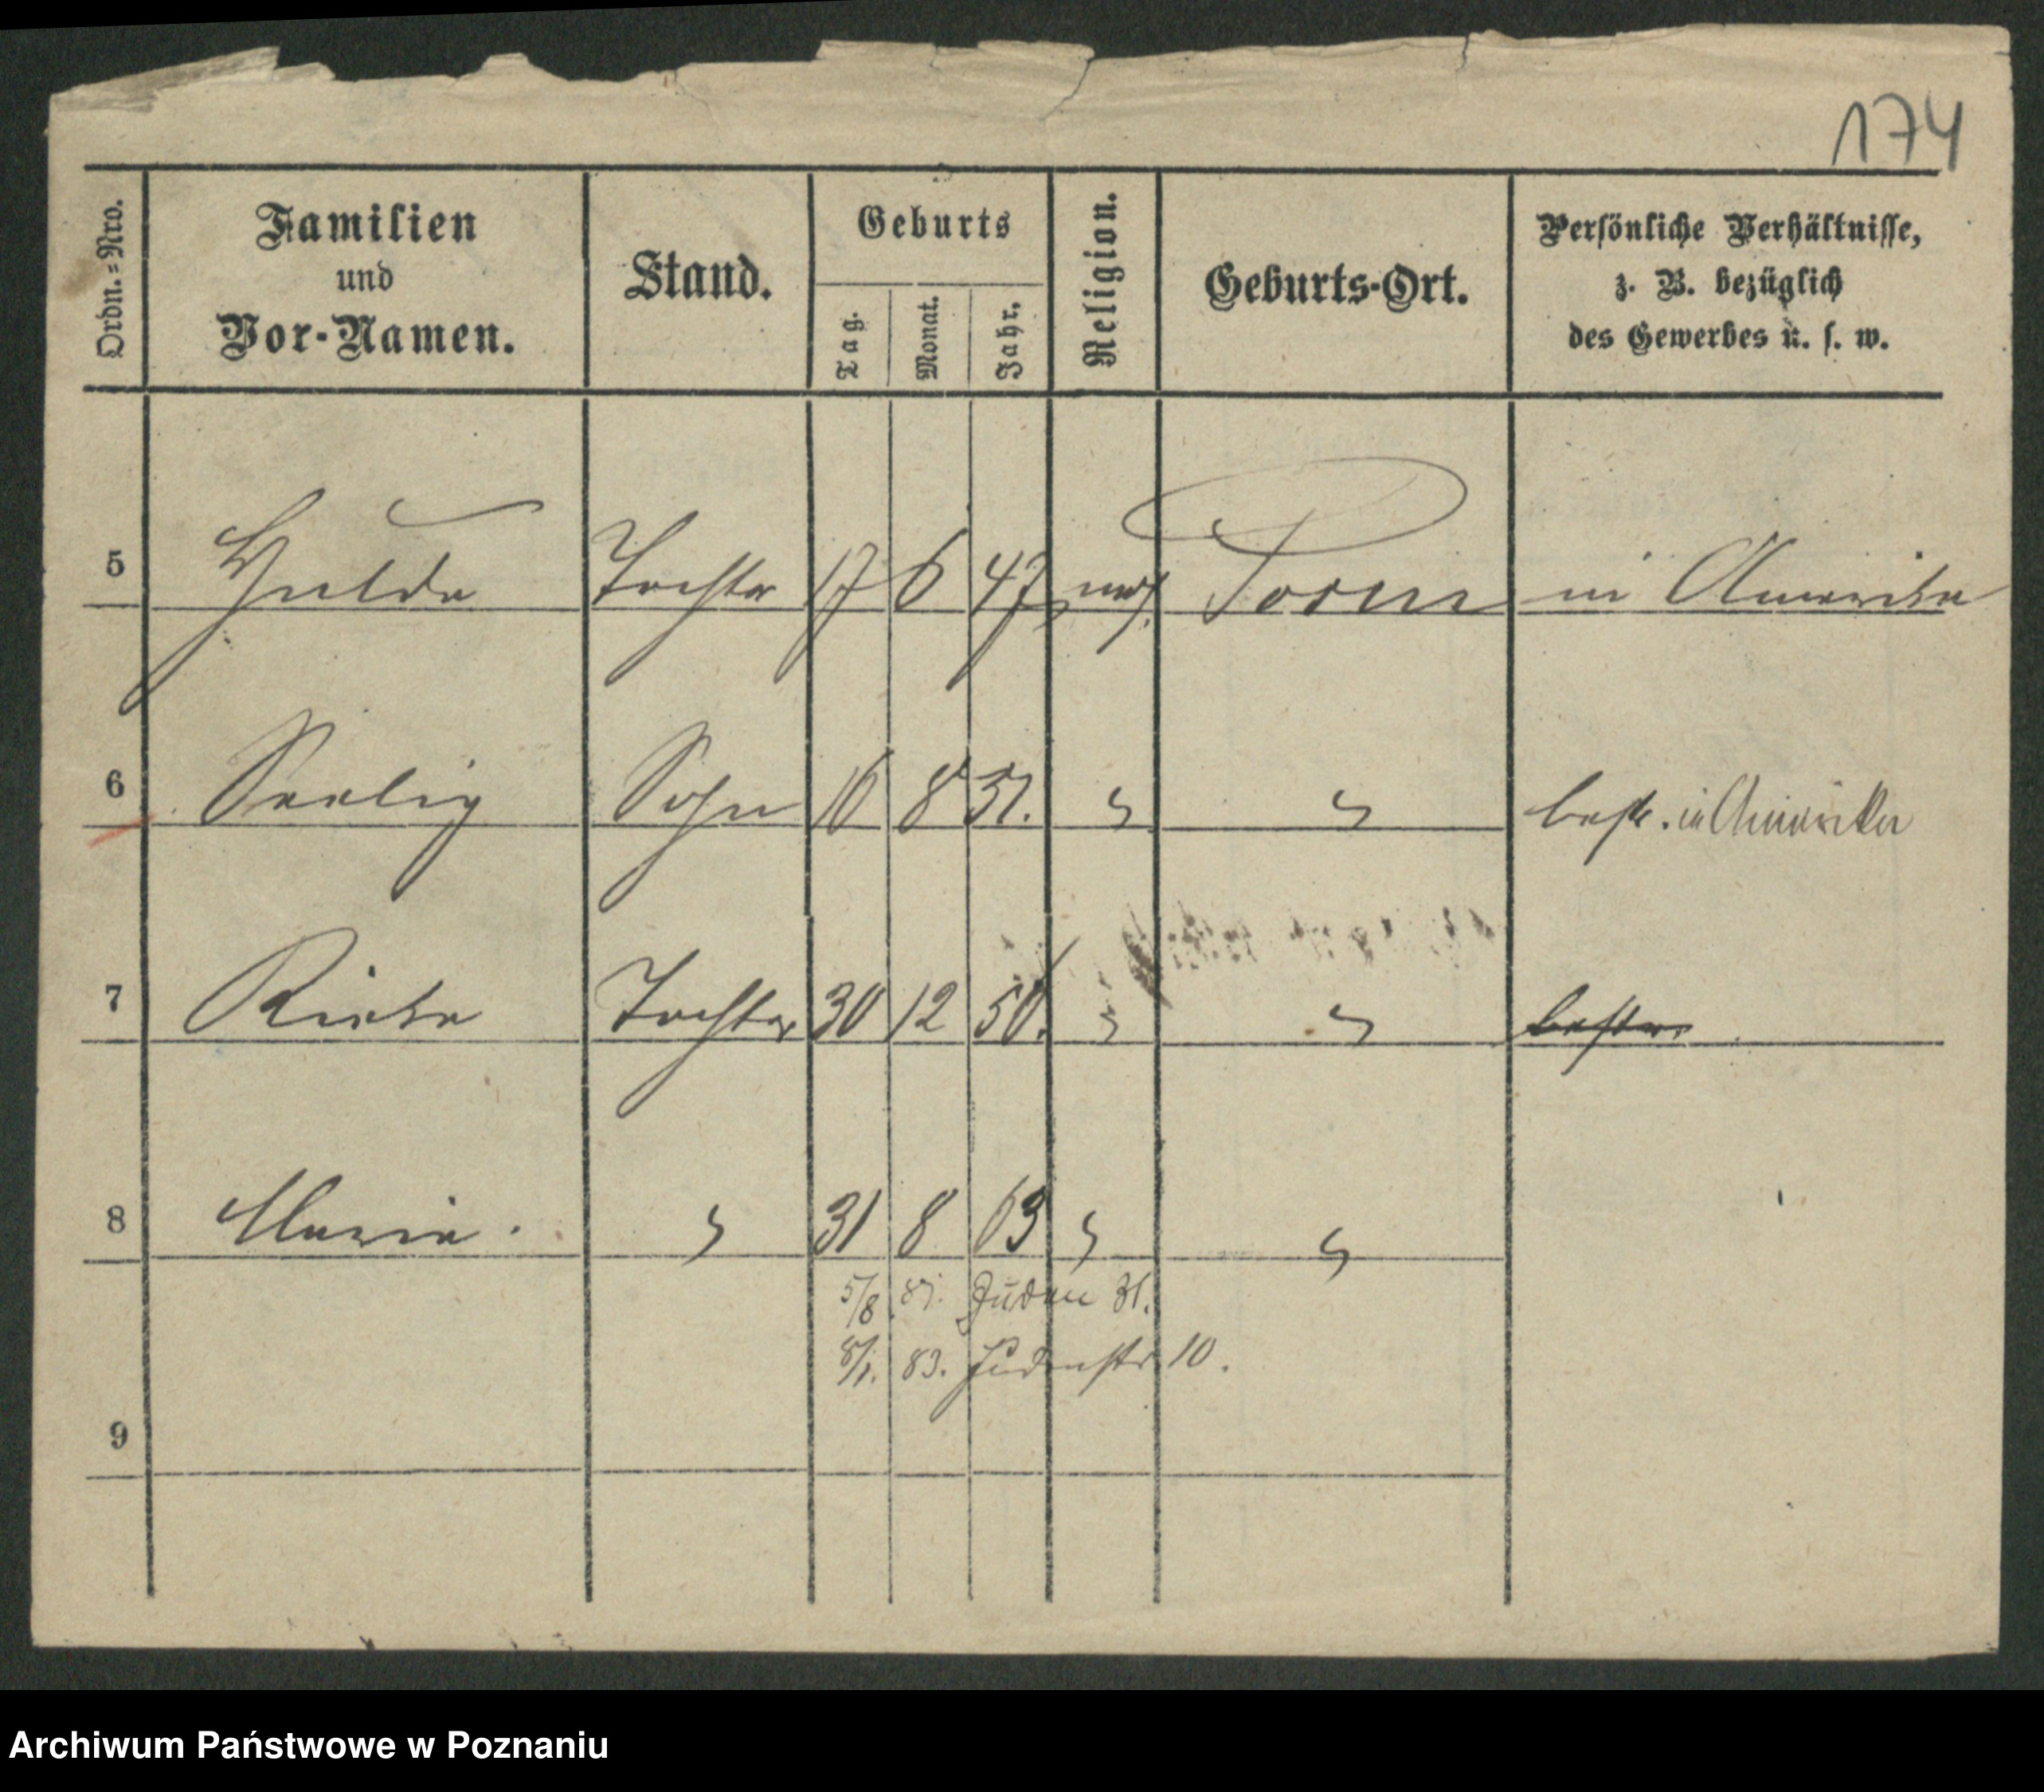 174
Ordn.=Nro.
Familien
und
Vor-Namen.
Stand.
Geburts
Tag.
Monat.
Jahr.
Religion.
Geburts-Ort.
Persönliche Verhältnisse,
z. B. bezüglich
des Gewerbes u. s. w.
5 Hulda Tochter 17 6 47 mos. Posen in Amerika
6 Seelig Sohn 16 8 51. " " in Amerika
7 Rieke Tochter 30 12 58. " "
8 Maria. " 31 8 63 " "
5/8. 81. Juden 31.
8/1. 83. Judenstr 10.
9
Archiwum Państwowe w Poznaniu